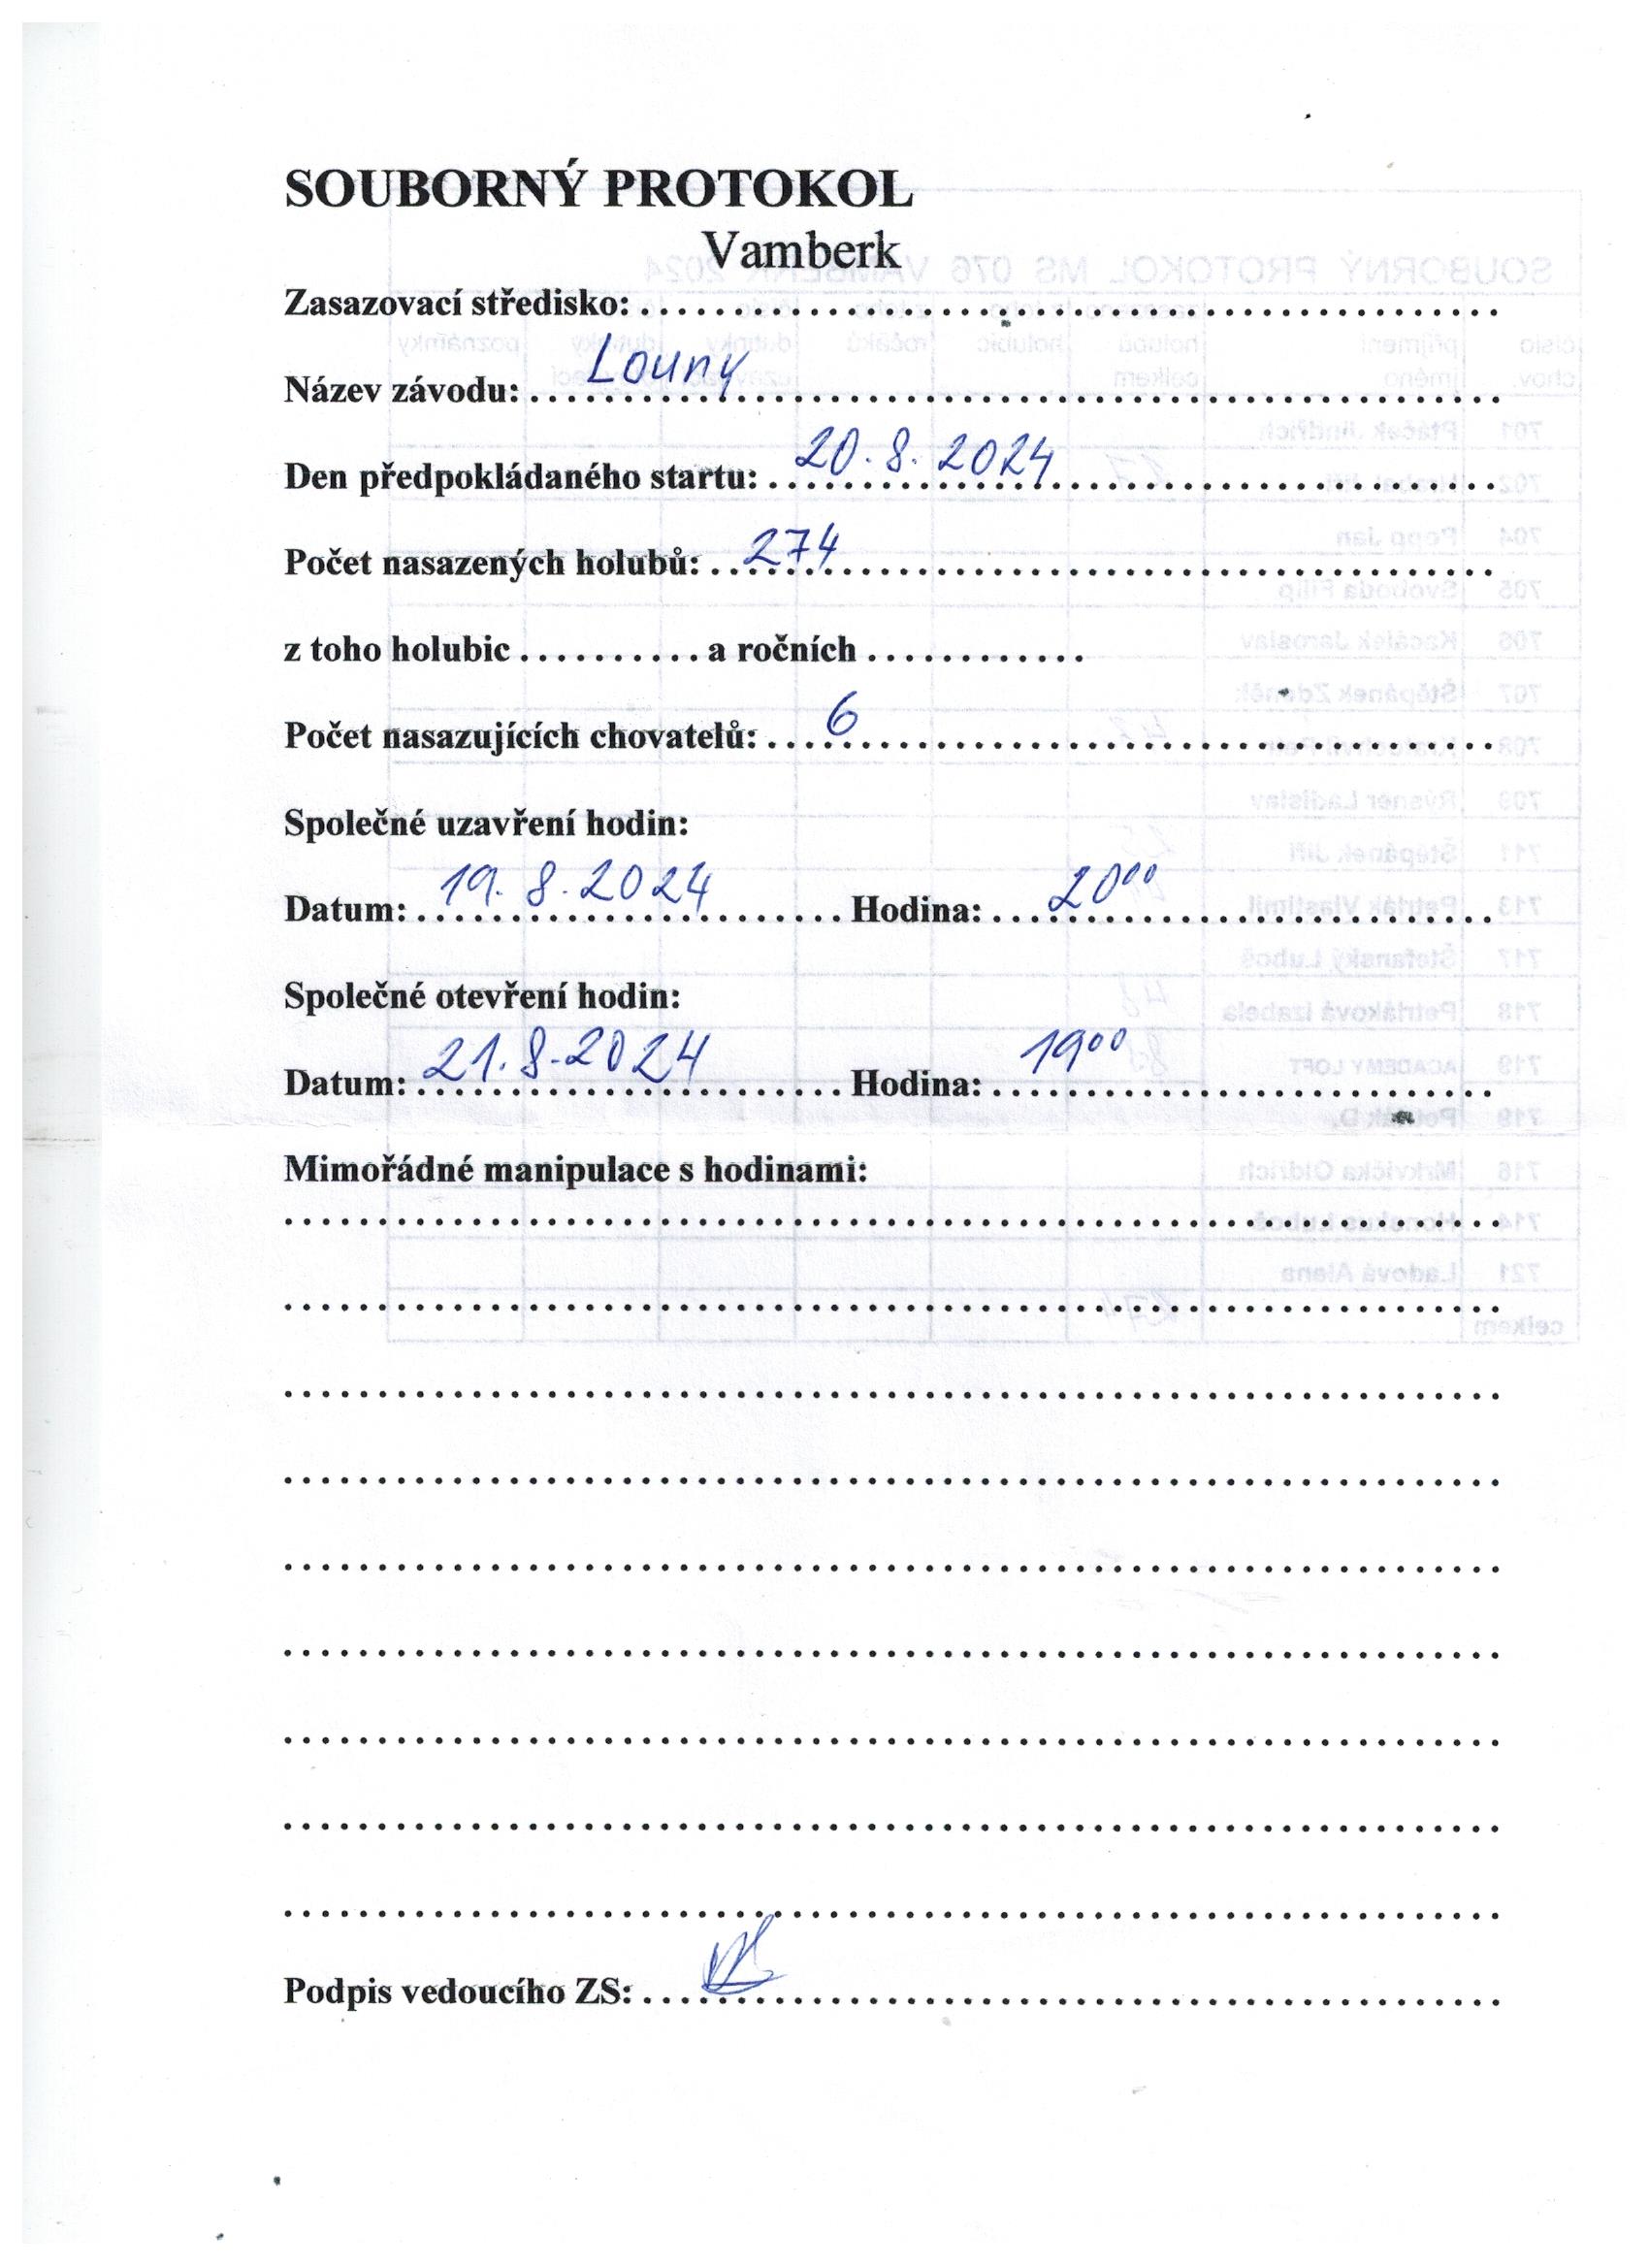 SOUBORNÝ PROTOKOL
Vamberk
Zasazovací středisko: ..............................................
Název závodu: Louny
Den předpokládaného startu: 20. 8. 2024
Počet nasazených holubů: 274
z toho holubic .......... a ročních ............
Počet nasazujících chovatelů: 6
Společné uzavření hodin:
Datum: 19. 8. 2024 Hodina: 20⁰⁰
Společné otevření hodin:
Datum: 21. 8. 2024 Hodina: 19⁰⁰
Mimořádné manipulace s hodinami:
Podpis vedoucího ZS: